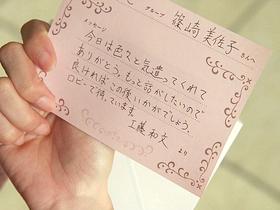 グループ
篠崎 美佐子 さんへ
メッセージ
今日は色々と気遣ってくれて
ありがとう。もっと話がしたいので
良ければこの後いかがでしょう。
ロビーで待っています
工藤和文
より